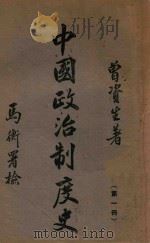 曾資生著
(第一冊)
中國政治制度史
馬衡署檢